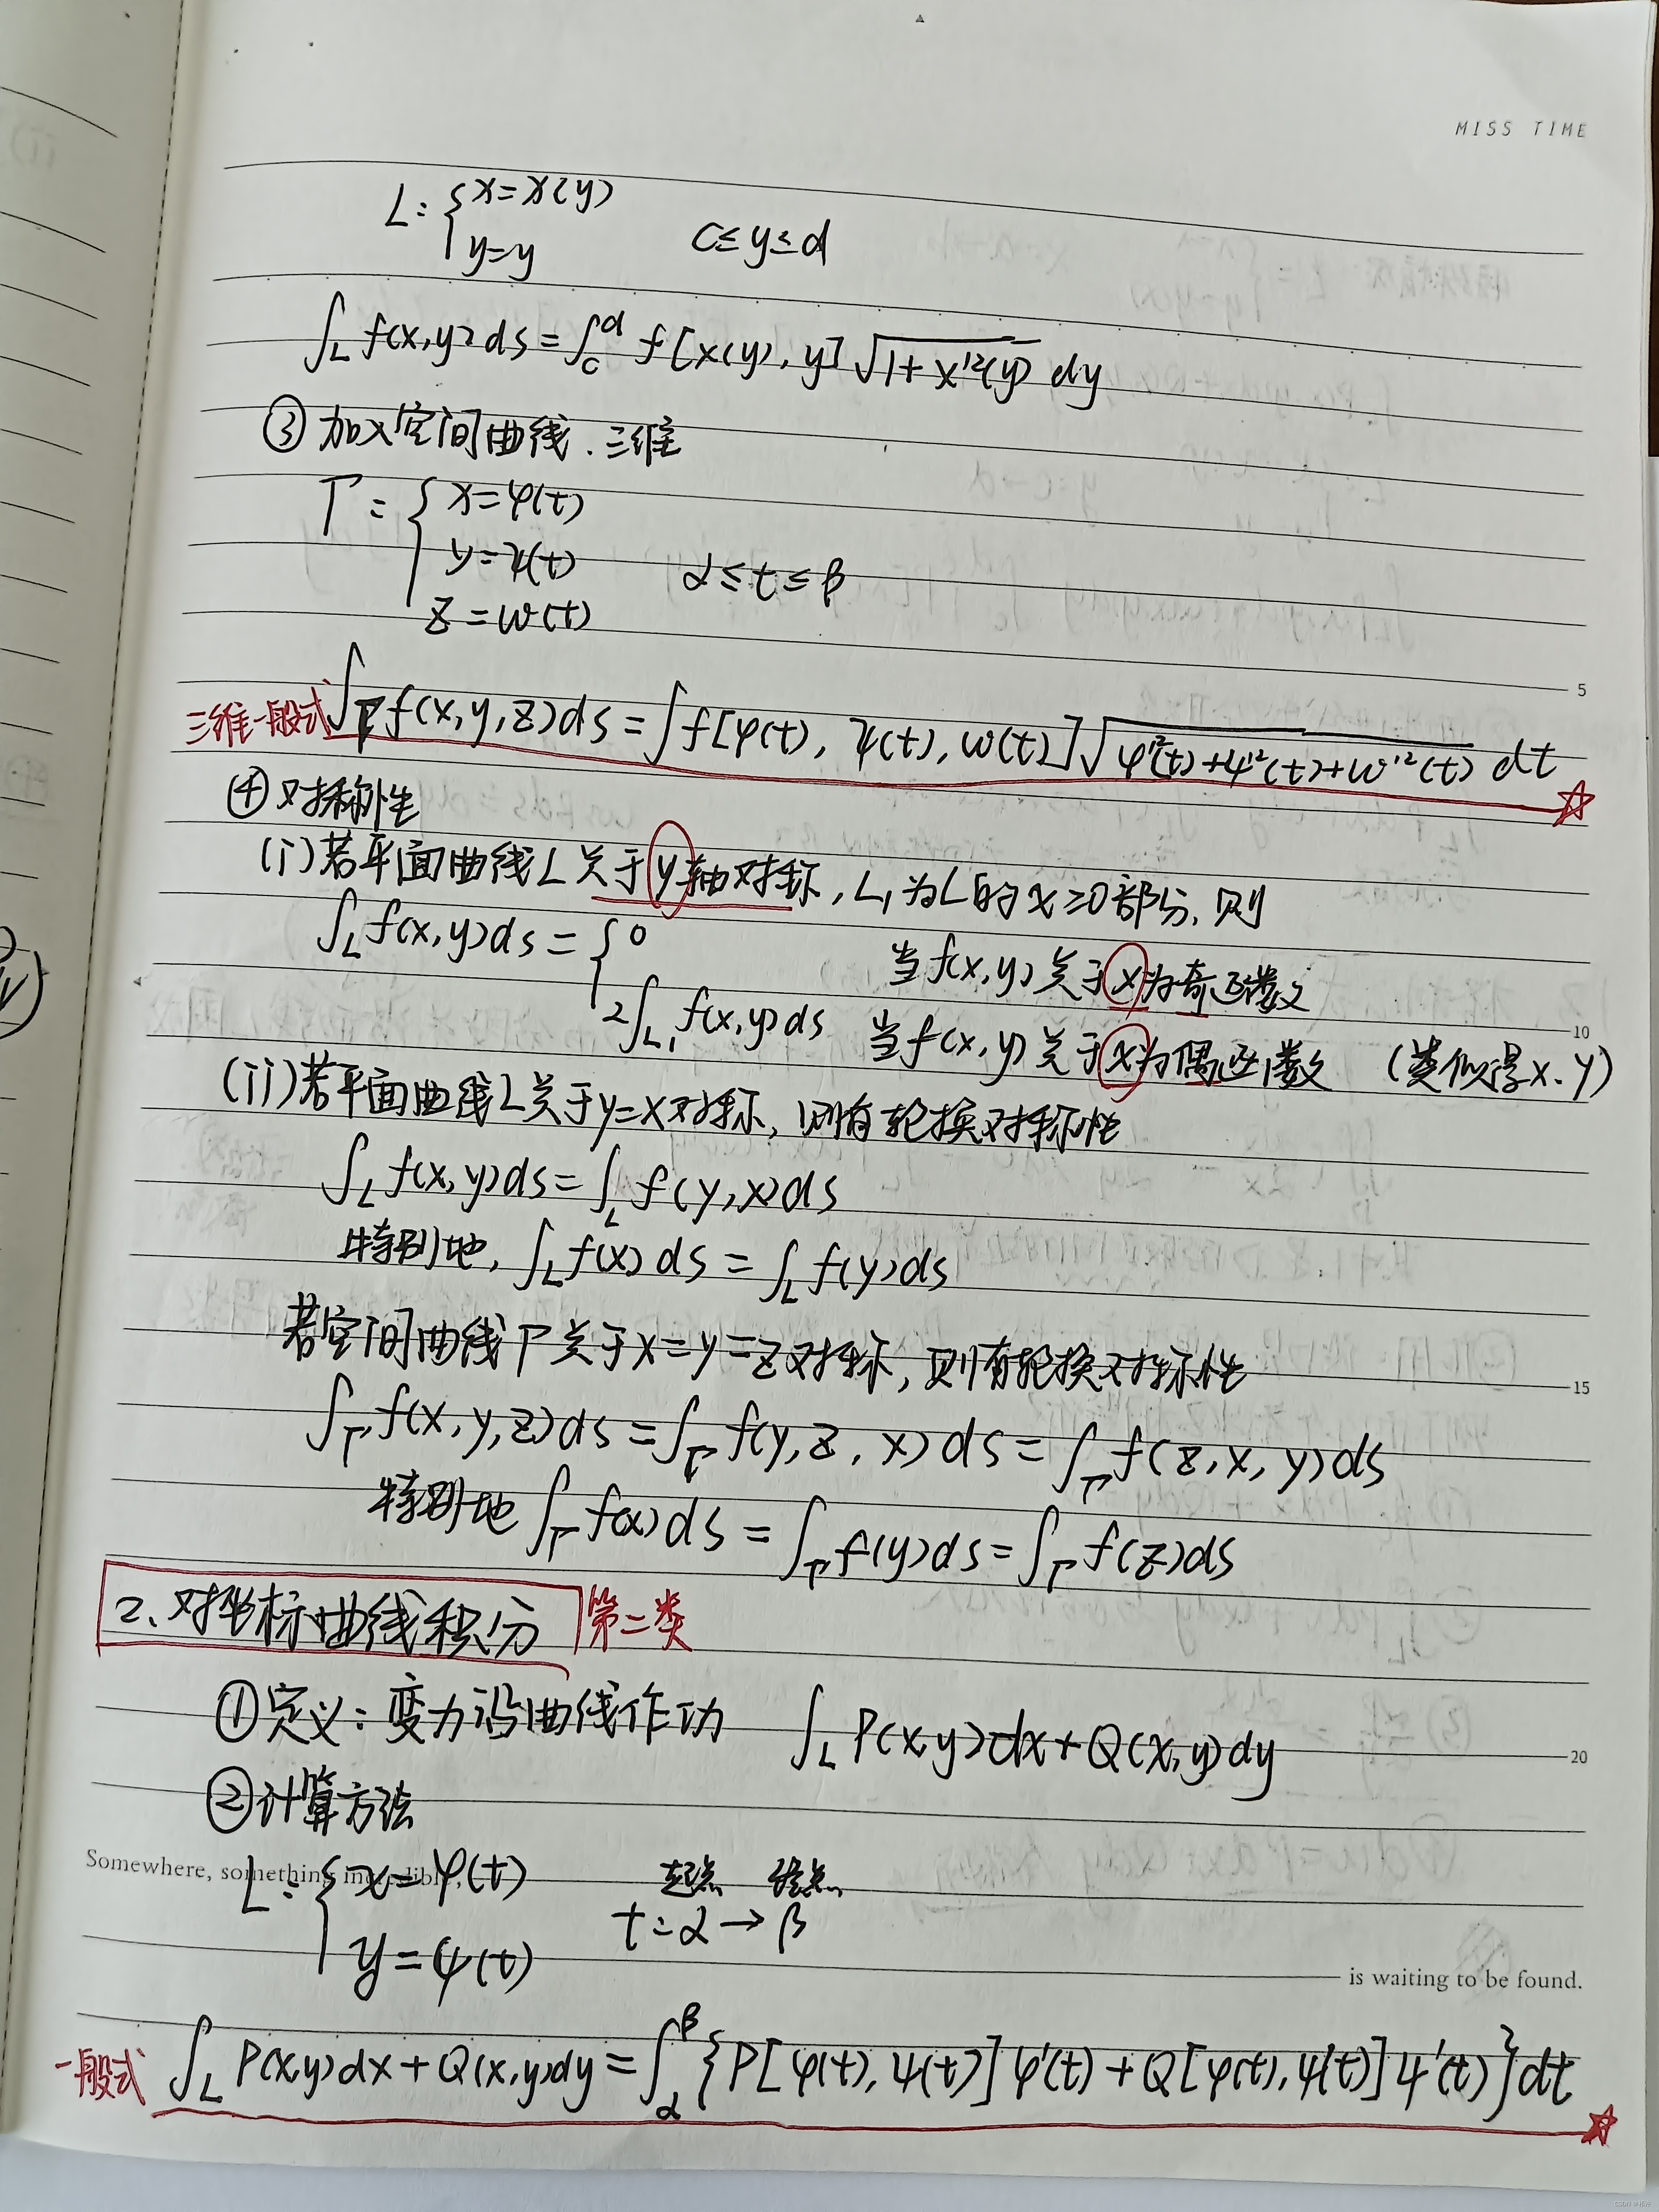 MISS TIME
L: { x=x(y)
y=y  c≤y≤d
∫_L f(x,y)ds=∫_c^d f[x(y),y]√(1+x'²(y)) dy
③ 加入空间曲线.三维
Γ: { x=φ(t)
y=ψ(t)  α≤t≤β
z=w(t)
5
三维一般式 ∫_Γ f(x,y,z)ds=∫f[φ(t),ψ(t),w(t)]√(φ'²(t)+ψ'²(t)+w'²(t)) dt ☆
④ 对称性
(i)若平面曲线L关于y轴对称,L₁为L的x≥0部分,则
∫_L f(x,y)ds= { 0  当f(x,y)关于x为奇函数
2∫_L₁ f(x,y)ds  当f(x,y)关于x为偶函数 (类似得x.y)
10
(ii)若平面曲线L关于y=x对称,则有轮换对称性
∫_L f(x,y)ds=∫_L f(y,x)ds
特别地,∫_L f(x)ds=∫_L f(y)ds
若空间曲线Γ关于x=y=z对称,则有轮换对称性
15
∫_Γ f(x,y,z)ds=∫_Γ f(y,z,x)ds=∫_Γ f(z,x,y)ds
特别地∫_Γ f(x)ds=∫_Γ f(y)ds=∫_Γ f(z)ds
2、对坐标曲线积分 第二类
①定义:变力沿曲线作功  ∫_L P(x,y)dx+Q(x,y)dy
20
②计算方法
Somewhere, something incredible,
L: { x=φ(t)  起点 终点
y=ψ(t)  t:α→β
is waiting to be found.
一般式 ∫_L P(x,y)dx+Q(x,y)dy=∫_α^β {P[φ(t),ψ(t)]φ'(t)+Q[φ(t),ψ(t)]ψ'(t)}dt ☆